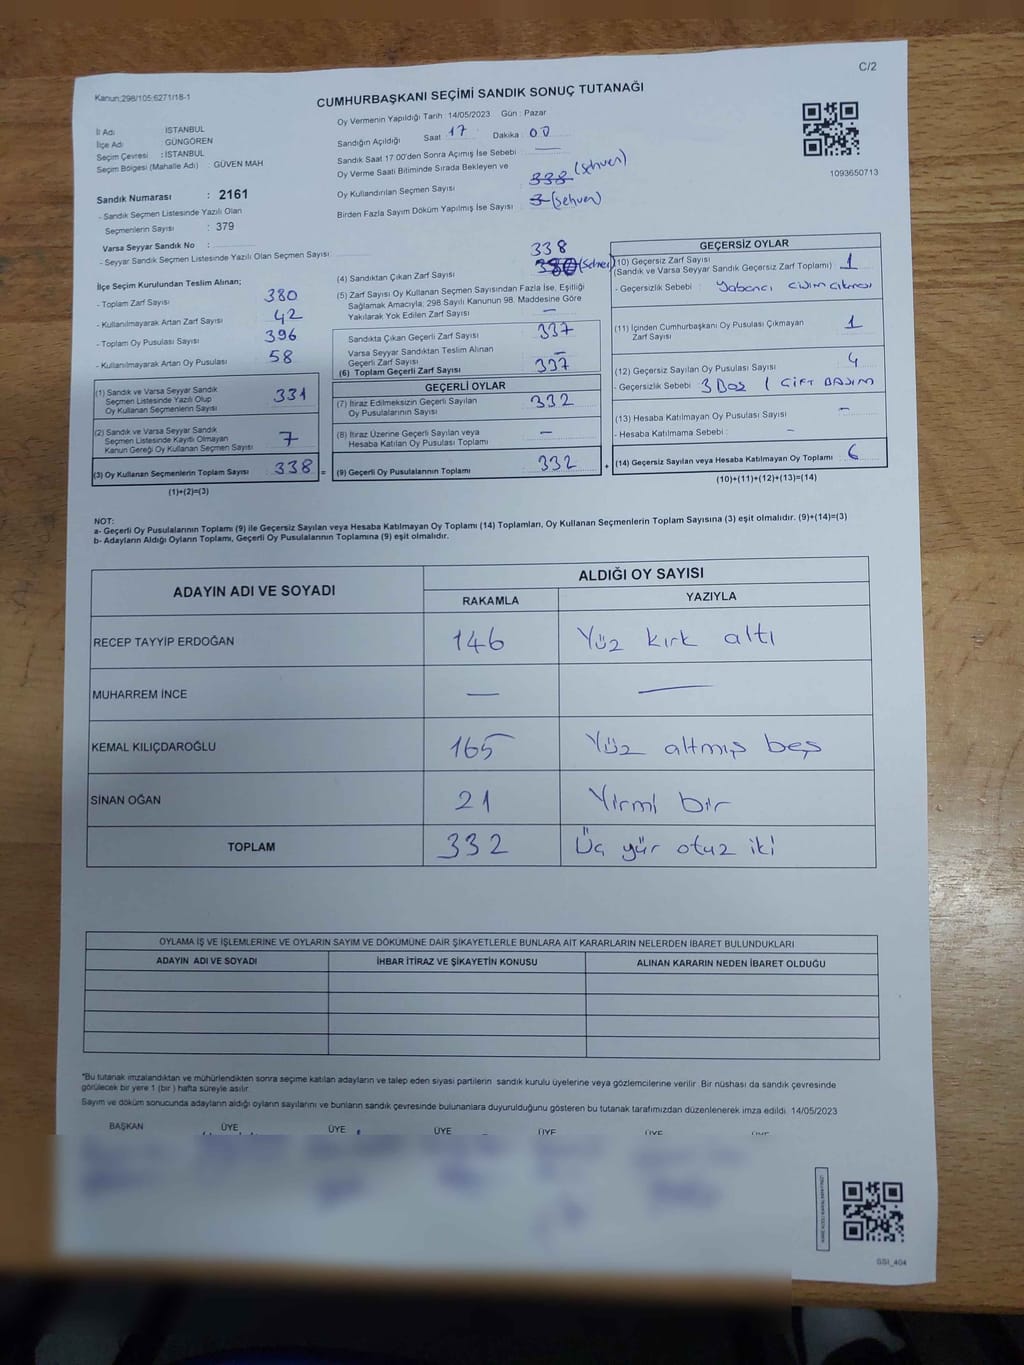 C/2
Kanun:298/105:6271/18-1
CUMHURBAŞKANI SEÇİMİ SANDIK SONUÇ TUTANAĞI
İl Adı İSTANBUL
İlçe Adı GÜNGÖREN
Seçim Çevresi : İSTANBUL
Seçim Bölgesi (Mahalle Adı) : GÜVEN MAH
Oy Vermenin Yapıldığı Tarih :14/05/2023 Gün : Pazar
Sandığın Açıldığı Saat : 17 Dakika : 00
Sandık Saat 17.00'den Sonra Açılmış İse Sebebi : —
Oy Verme Saati Bitiminde Sırada Bekleyen ve
Oy Kullandırılan Seçmen Sayısı : 338 (sehven)
Birden Fazla Sayım Döküm Yapılmış İse Sayısı : 3 (sehven)
1093650713
Sandık Numarası : 2161
- Sandık Seçmen Listesinde Yazılı Olan
Seçmenlerin Sayısı : 379
Varsa Seyyar Sandık No :
- Seyyar Sandık Seçmen Listesinde Yazılı Olan Seçmen Sayısı:
İlçe Seçim Kurulundan Teslim Alınan;
- Toplam Zarf Sayısı 380
- Kullanılmayarak Artan Zarf Sayısı 42
- Toplam Oy Pusulası Sayısı 396
- Kullanılmayarak Artan Oy Pusulası 58
(1) Sandık ve Varsa Seyyar Sandık
Seçmen Listesinde Yazılı Olup
Oy Kullanan Seçmenlerin Sayısı 331
(2) Sandık ve Varsa Seyyar Sandık
Seçmen Listesinde Kayıtlı Olmayan
Kanun Gereği Oy Kullanan Seçmen Sayısı 7
(3) Oy Kullanan Seçmenlerin Toplam Sayısı 338 =
(1)+(2)=(3)
338
(4) Sandıktan Çıkan Zarf Sayısı 380
(5) Zarf Sayısı Oy Kullanan Seçmen Sayısından Fazla İse, Eşitliği
Sağlamak Amacıyla; 298 Sayılı Kanunun 98. Maddesine Göre
Yakılarak Yok Edilen Zarf Sayısı —
Sandıkta Çıkan Geçerli Zarf Sayısı 337
Varsa Seyyar Sandıktan Teslim Alınan
Geçerli Zarf Sayısı —
(6) Toplam Geçerli Zarf Sayısı 337
GEÇERLİ OYLAR
(7) İtiraz Edilmeksizin Geçerli Sayılan
Oy Pusulalarının Sayısı 332
(8) İtiraz Üzerine Geçerli Sayılan veya
Hesaba Katılan Oy Pusulası Toplamı —
(9) Geçerli Oy Pusulalarının Toplamı 332 +
GEÇERSİZ OYLAR
(10) Geçersiz Zarf Sayısı
(Sandık ve Varsa Seyyar Sandık Geçersiz Zarf Toplamı) 1
- Geçersizlik Sebebi : Yabancı cisim çıkması
(11) İçinden Cumhurbaşkanı Oy Pusulası Çıkmayan
Zarf Sayısı 1
(12) Geçersiz Sayılan Oy Pusulası Sayısı 4
- Geçersizlik Sebebi : 3 BOŞ 1 ÇİFT BASIM
(13) Hesaba Katılmayan Oy Pusulası Sayısı —
- Hesaba Katılmama Sebebi : —
(14) Geçersiz Sayılan veya Hesaba Katılmayan Oy Toplamı 6
(10)+(11)+(12)+(13)=(14)
NOT:
a- Geçerli Oy Pusulalarının Toplamı (9) ile Geçersiz Sayılan veya Hesaba Katılmayan Oy Toplamı (14) Toplamları, Oy Kullanan Seçmenlerin Toplam Sayısına (3) eşit olmalıdır. (9)+(14)=(3)
b- Adayların Aldığı Oyların Toplamı, Geçerli Oy Pusulalarının Toplamına (9) eşit olmalıdır.
ADAYIN ADI VE SOYADI ALDIĞI OY SAYISI
RAKAMLA YAZIYLA
RECEP TAYYİP ERDOĞAN 146 Yüz kırk altı
MUHARREM İNCE — —
KEMAL KILIÇDAROĞLU 165 Yüz altmış beş
SİNAN OĞAN 21 Yirmi bir
TOPLAM 332 Üç yür otuz iki
OYLAMA İŞ VE İŞLEMLERİNE VE OYLARIN SAYIM VE DÖKÜMÜNE DAİR ŞİKAYETLERLE BUNLARA AİT KARARLARIN NELERDEN İBARET BULUNDUKLARI
ADAYIN ADI VE SOYADI İHBAR İTİRAZ VE ŞİKAYETİN KONUSU ALINAN KARARIN NEDEN İBARET OLDUĞU
*Bu tutanak imzalandıktan ve mühürlendikten sonra seçime katılan adayların ve talep eden siyasi partilerin sandık kurulu üyelerine veya gözlemcilerine verilir. Bir nüshası da sandık çevresinde
görülecek bir yere 1 (bir ) hafta süreyle asılır.
Sayım ve döküm sonucunda adayların aldığı oyların sayılarını ve bunların sandık çevresinde bulunanlara duyurulduğunu gösteren bu tutanak tarafımızdan düzenlenerek imza edildi. 14/05/2023
BAŞKAN ÜYE ÜYE ÜYE ÜYE ÜYE
SSI_404